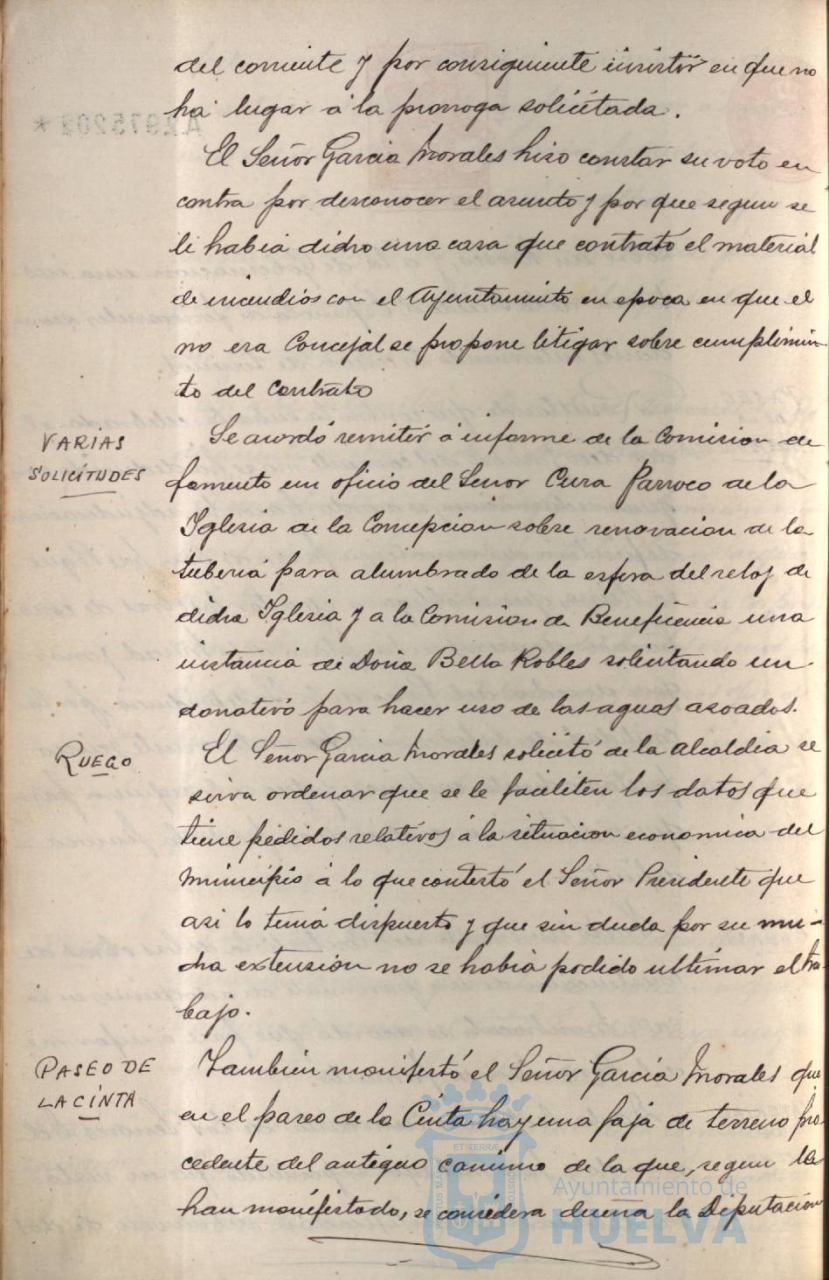 del corriente y por consiguiente insistir en que no
ha lugar á la prorroga solicitada.
El Señor Garcia Morales hizo constar su voto en
contra por desconocer el asunto y por que segun se
le habia dicho una casa que contrató el material
de incendios con el Ayuntamiento en epoca en que el
no era Concejal se propone litigar sobre cumplimien-
to del contrato
VARIAS
SOLICITUDES
Se acordó remitir á informe de la Comision de
fomento un oficio del Señor Cura Parroco de la
Iglesia de la Concepcion sobre renovacion de la
tuberia para alumbrado de la esfera del reloj de
dicha Iglesia y a la Comision de Beneficencia una
instancia de Doña Bella Robles solicitando un
donativo para hacer uso de las aguas azoados.
RUEGO
El Señor Garcia Morales solicitó de la alcaldia se
sirva ordenar que se le faciliten los datos que
tiene pedidos relativos á la situacion economica del
Municipio á lo que contestó el Señor Presidente que
asi lo tenia dispuesto y que sin duda por su mu-
cha extension no se habia podido ultimar el tra-
bajo.
PASEO DE
LA CINTA
Tambien manifestó el Señor Garcia Morales que
en el paseo de la Cinta hay una faja de terreno pro-
cedente del antiguo camino de la que, segun le
han manifestado, se considera duena la Diputacion
Ayuntamiento de
HUELVA